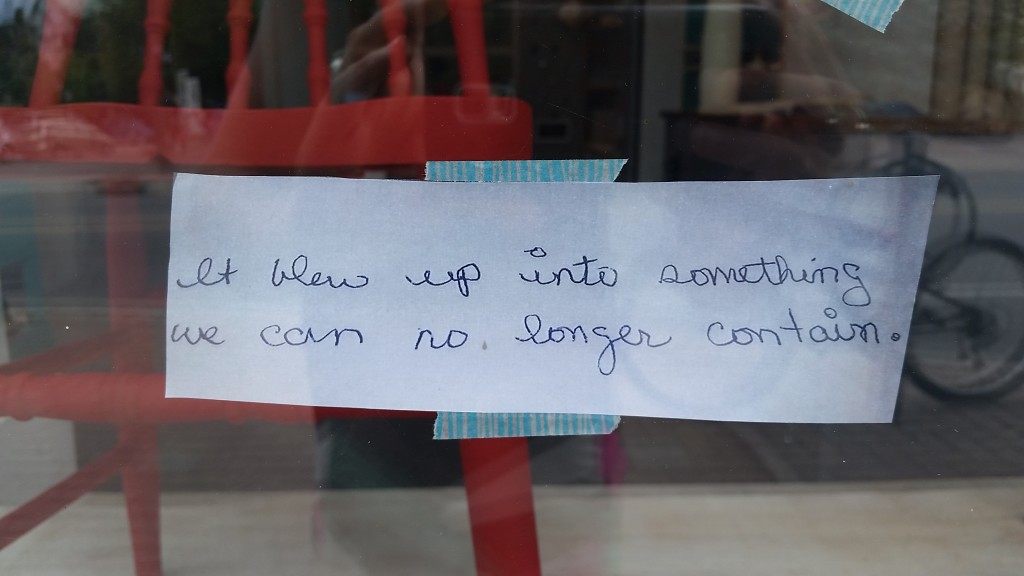 It blew up into something
we can no longer contain.